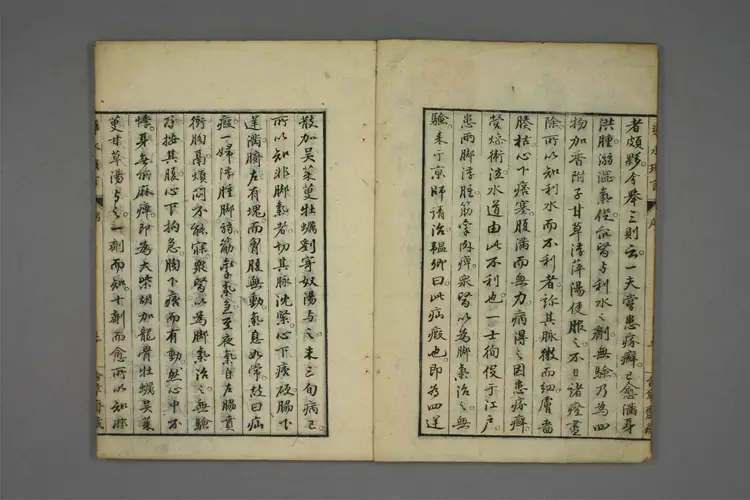 者頗夥。今舉三則云。一夫嘗患疥癬。已愈滿身
洪腫喘滿氣促。衆醫与利水之劑無驗。乃為四
物加香附子甘草浮萍湯使服之。不日諸證盡
除。所以知利水而不利者。診其脉微而細。膚
腠枯。心下痞塞。腹滿而無力。病得之因患疥癬。
水道由此不利也。一士徇役于江戶。
患兩脚浮腫筋攣肉痺。衆醫以為脚氣治之。無
驗。来于京師請治。韞卿曰。此病瘕也。即為四逆
散加吳茱萸牡蠣劉寄奴湯与之。未三旬病已。
所以知非脚氣者。切其脉沈緊。心下痞硬。腸下
逆滿。臍左有塊。而胷腹無動。氣息如常。故曰疝
瘕。一婦浮腫脚弱。筋攣氣急。至夜氣自左腸賁
衝胸鬲煩悶不能寐。衆醫以為脚氣治之。無驗
予按其腹。心下拘急。胸下痞而有動。然心中不
悸。身無麻痺。即為大柴胡加龍骨牡蠣吳茱
萸甘草湯与之。一劑而知。十劑而愈。所以知非